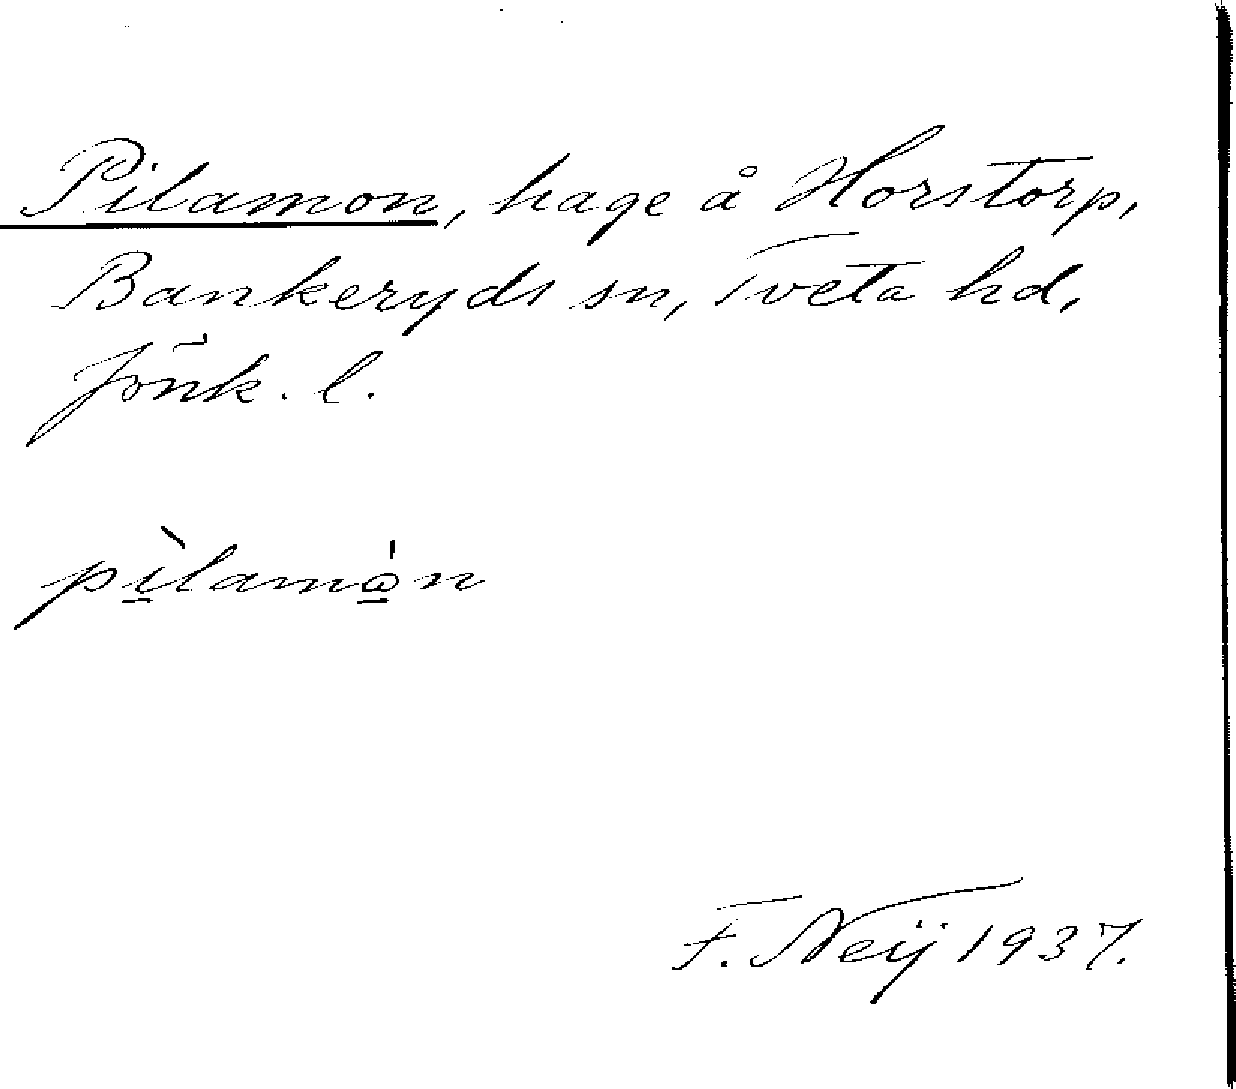 Pilamon, hage å Horstorp,
Bankeryds sn, Tveta hd,
Jönk. l.
pìlamo̱̍n
F. Neij 1937.